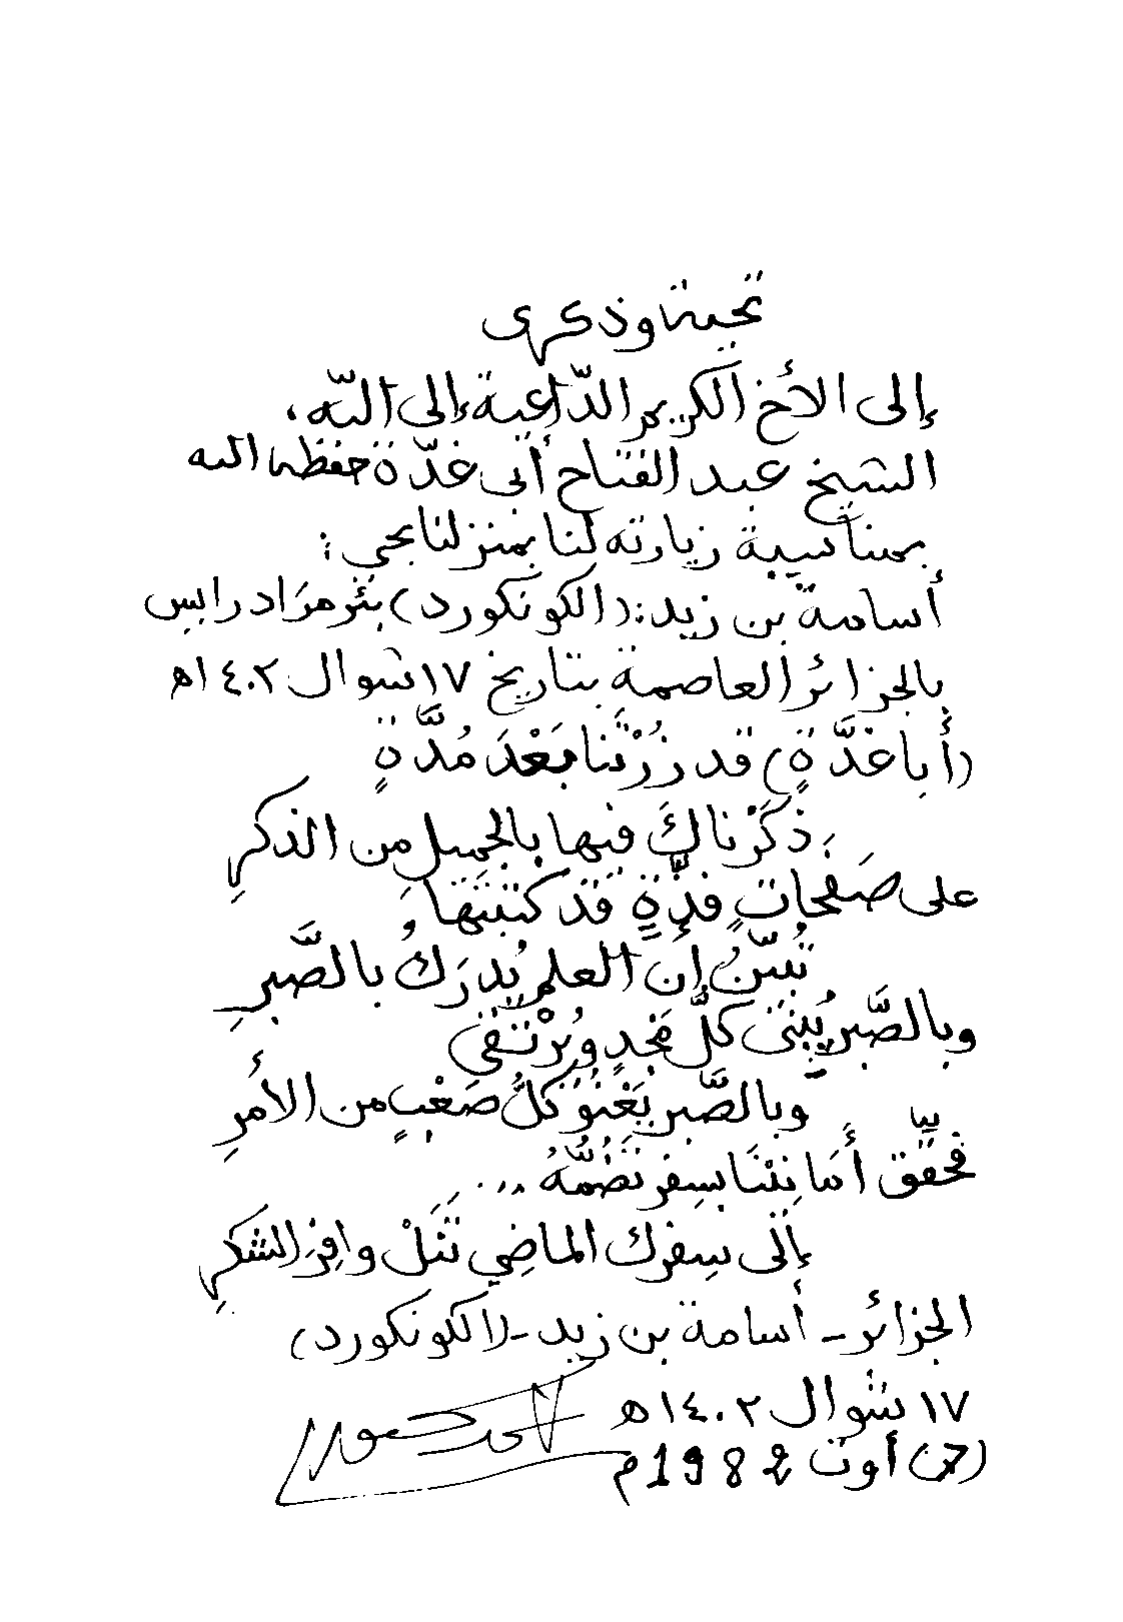 تحية وذكرى
إلى الأخ الكريم الدّاعية إلى الله،
الشيخ عبد الفتاح أبي غدّة حفظه الله
بمناسبة زيارته لنا بمنزلنا بحي:
أسامة بن زيد: (الكونكورد) بئر مرَاد رايس
بالجزائر العاصمة بتاريخ ١٧ شوال ١٤٠٢هـ
(أبا غدَّةٍ) قد زُرْتَنا بَعْدَ مُدَّةٍ
ذكَرْناكَ فيها بالجميل من الذكرِ
على صَفَحاتٍ فذَّةٍ قد كتبْتَها
تُبيّنُ إن العلم يُدرَكُ بالصَّبرِ
وبالصَّبر يُبْنَى كلُّ مَجْدٍ ويُرْتَقَى
وبالصَّبر يَعْنُو كلُّ صَعْبٍ من الأمرِ
فحقِّق أمَانِيْنَا بسِفر تَضُمُّهُ ...
إلى سِفرك الماضِي تَنَلْ وافِرَ الشكرِ
الجزائر - أسامة بن زيد - (الكونكورد)
١٧ شوال ١٤٠٢هـ
أوت 1982م